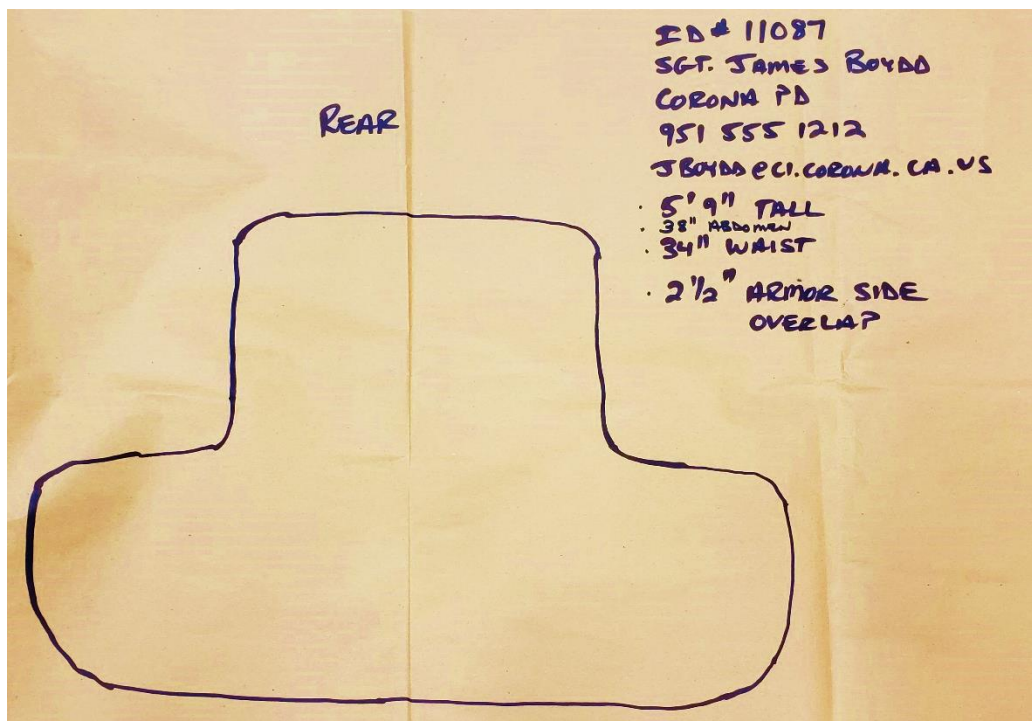 REAR
ID # 11087
SGT. JAMES BOYDD
CORONA PD
951 555 1212
JBOYDD@CI.CORONA.CA.US
· 5' 9" TALL
· 38" ABDOMEN
· 34" WAIST
· 2 1/2" ARMOR SIDE
OVERLAP